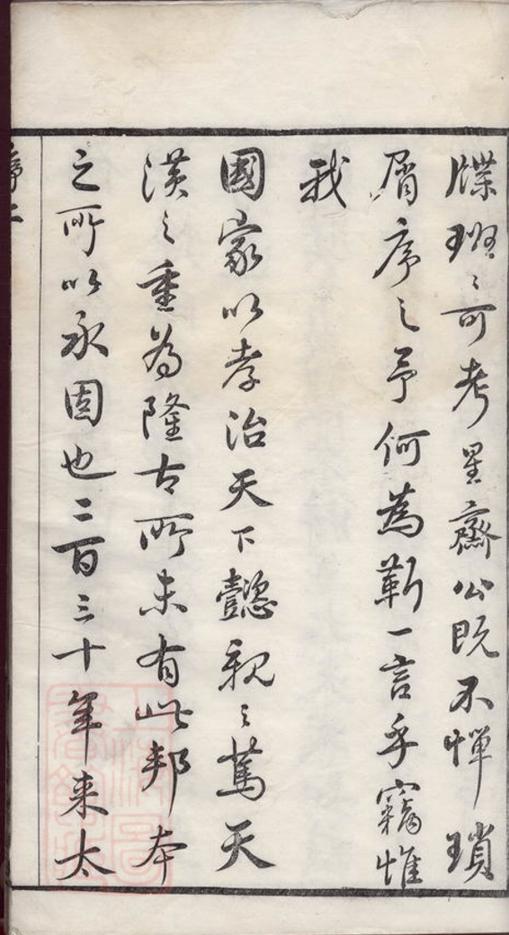 牒班〻可考星齋公既不憚瑣
屑序之予何為靳一言乎竊惟
我
國家以孝治天下懿親之篤天
潢之重為隆古所未有此邦本
之所以永固也二百三十年来太
序二